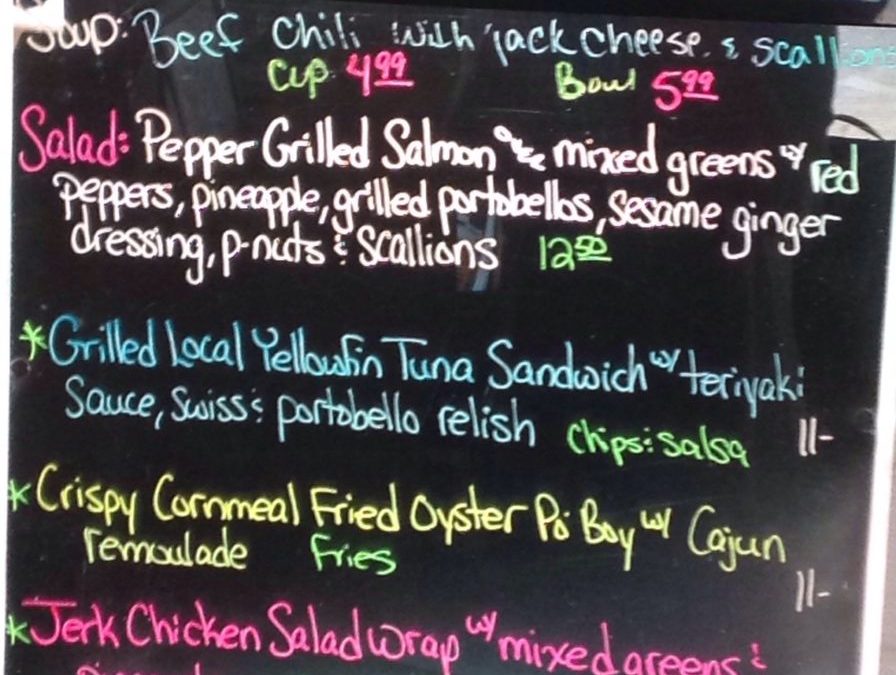 Soup: Beef Chili with jack cheese & scallions
Cup 4.99 Bowl 5.99
Salad: Pepper Grilled Salmon over mixed greens w/ red
peppers, pineapple, grilled portobellos, sesame ginger
dressing, p-nuts & scallions 12.50
*Grilled Local Yellowfin Tuna Sandwich w/ teriyaki
Sauce, Swiss & portobello relish Chips & Salsa 11-
*Crispy Cornmeal Fried Oyster Po Boy w/ Cajun
remoulade Fries 11-
*Jerk Chicken Salad Wrap w/ mixed greens &